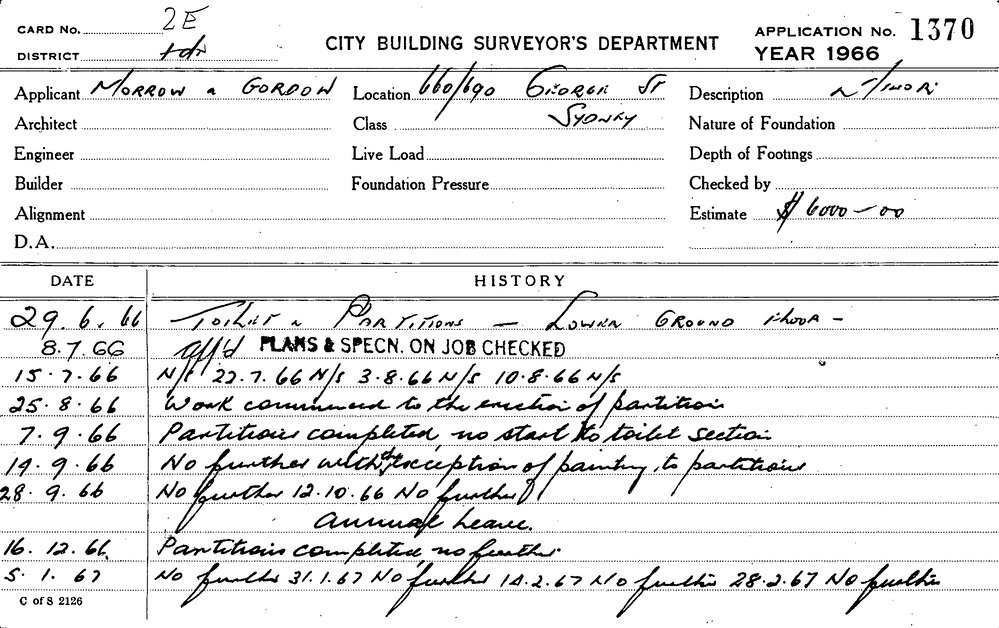 CARD No. 2E
DISTRICT
CITY BUILDING SURVEYOR'S DEPARTMENT
APPLICATION No. 1370
YEAR 1966
Applicant MORROW & GORDON
Location 660/690 GEORGE ST
Description
Architect
Class SYDNEY
Nature of Foundation
Engineer
Live Load
Depth of Footings
Builder
Foundation Pressure
Checked by
Alignment
Estimate $6000-00
D.A.
DATE HISTORY
29.6.66 TOILET & PARTITIONS - LOWER GROUND FLOOR -
8.7.66 App'd PLANS & SPECN. ON JOB CHECKED
15.7.66 N/S 22.7.66 N/S 3.8.66 N/S 10.8.66 N/S
25.8.66 Work commenced to the erection of partition
7.9.66 Partitions completed, no start to toilet section
19.9.66 No further with the exception of painting to partitions
28.9.66 No further 12.10.66 No further
Annual Leave.
16.12.66 Partitions completed, no further
5.1.67 No further 31.1.67 No further 14.2.67 No further 28.2.67 No further
C of S 2126